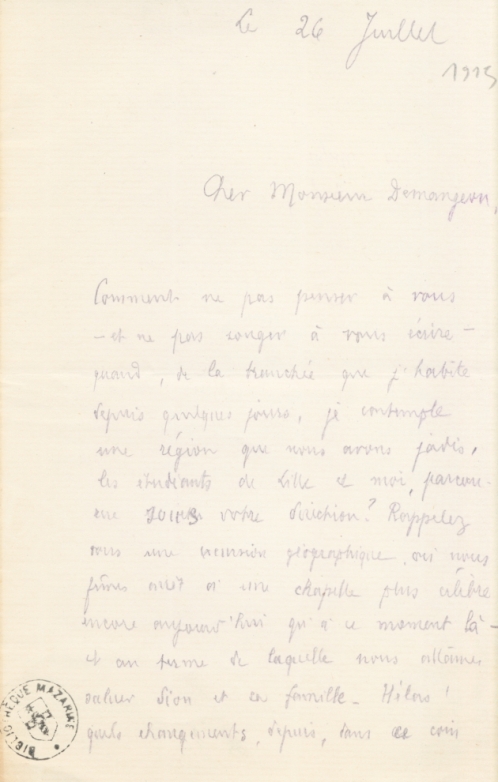 Le 26 Juillet
1915
Cher Monsieur Demangeon,
Comment ne pas penser à vous
– et ne pas songer à vous écrire –
quand, de la tranchée que j'habite
depuis quelques jours, je contemple
une région que nous avons jadis,
les étudiants de Lille et moi, parcou-
rue sous votre direction? Rappelez
vous une excursion géographique, où nous
fûmes à une chapelle plus célèbre
encore aujourd'hui qu'à ce moment là –
et au terme de laquelle nous allâmes
saluer Sion et sa famille – Hélas!
quels changements, depuis, dans ce coin
BIBLIOTHÈQUE MAZARINE